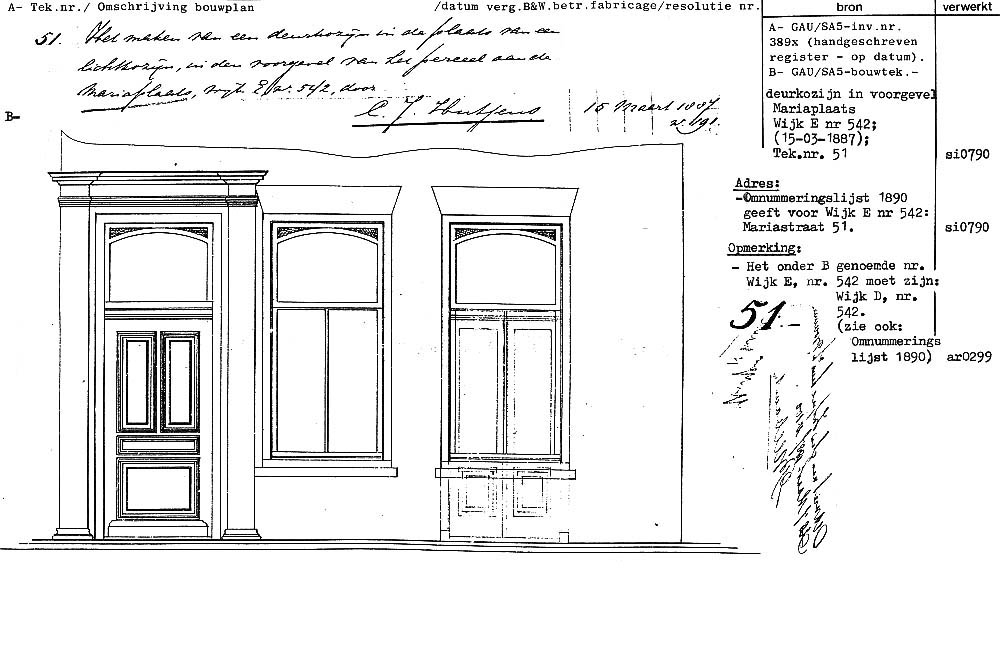 A- Tek.nr./ Omschrijving bouwplan /datum verg.B&W.betr.fabricage/resolutie nr.
51. Het maken van een deurkozijn in de plaats van een
lichtkozijn, in den voorgevel van het perceel aan de
Mariaplaats, wijk E nr. 542, door
C. J.
15 Maart 1887
n. 191.
B-
bron verwerkt
A- GAU/SA5-inv.nr.
389x (handgeschreven
register - op datum).
B- GAU/SA5-bouwtek.-
deurkozijn in voorgevel
Mariaplaats
Wijk E nr 542;
(15-03-1887);
Tek.nr. 51 si0790
Adres:
-Omnummeringslijst 1890
geeft voor Wijk E nr 542:
Mariastraat 51. si0790
Opmerking:
- Het onder B genoemde nr.
Wijk E, nr. 542 moet zijn:
Wijk D, nr.
542.
(zie ook:
Omnummerings
lijst 1890) ar0299
51.-